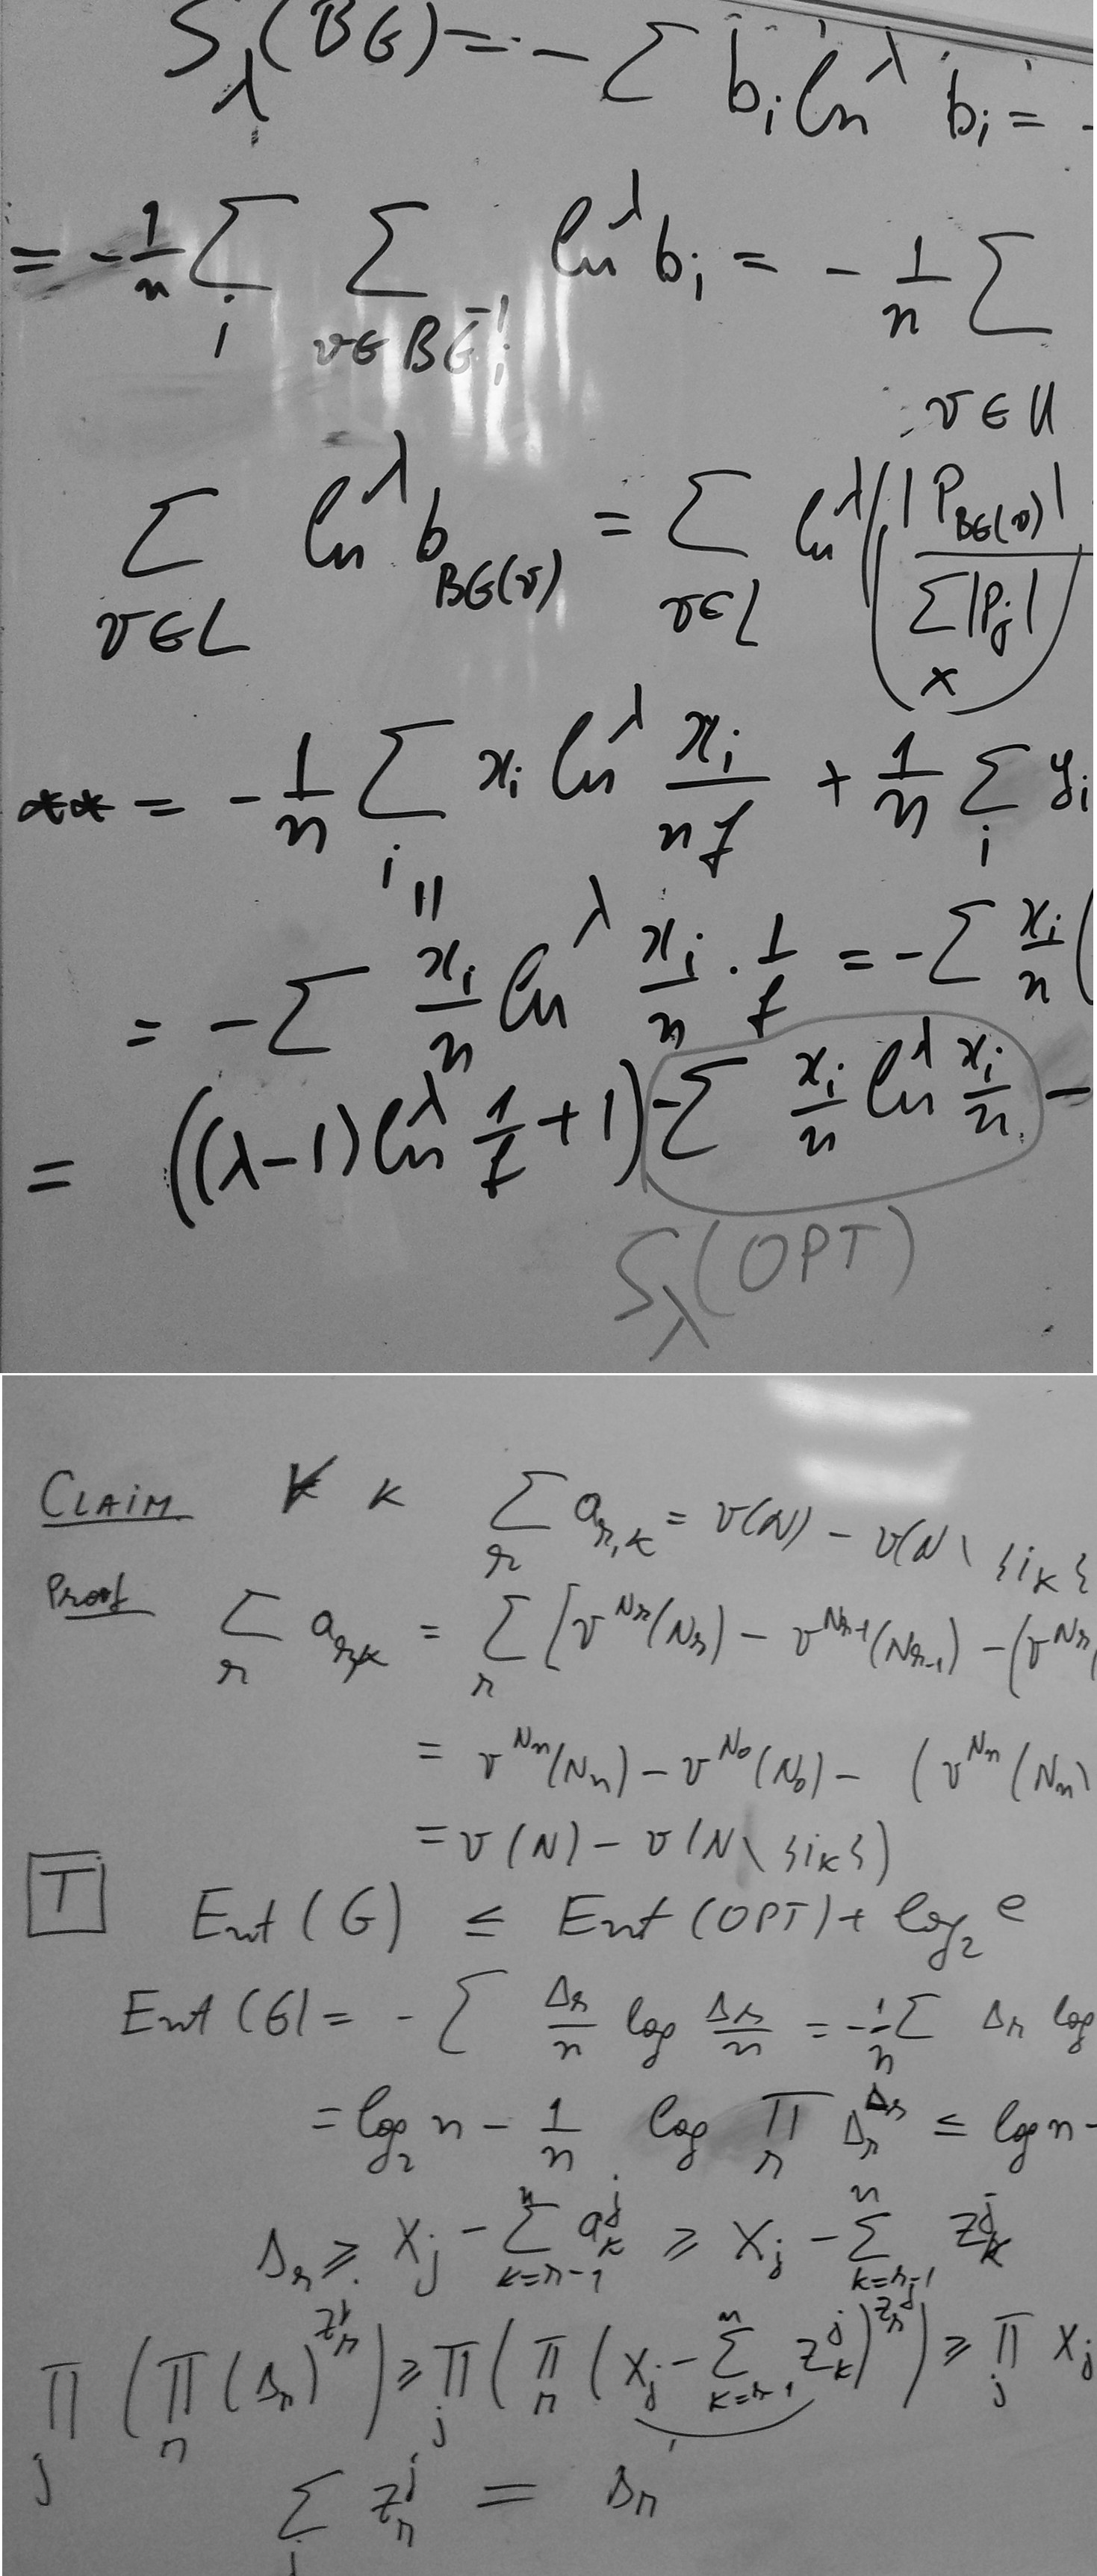 S_λ(BG) = - Σ b_i ln^λ b_i = -
= -1/n Σ_i Σ_{v∈BG^{-1}_i} ln^λ b_i = - 1/n Σ_{v∈U}
Σ_{v∈L} ln^λ b_{BG(v)} = Σ_{v∈L} ln^λ( |P_{BG(v)}| / Σ_x |P_j| )
** = - 1/n Σ_i x_i ln^λ x_i/(n f) + 1/n Σ_i y_i
||
= - Σ x_i/n ln^λ x_i/n · 1/f = - Σ x_i/n (
= ((λ-1) ln^λ 1/f + 1) - Σ x_i/n ln^λ x_i/n -
S_λ(OPT)
CLAIM ∀ k Σ_r a_{r,k} = v(N) - v(N \ {i_k}
Proof Σ_r a_{r,k} = Σ_r [v^{N_r}(N_r) - v^{N_{r-1}}(N_{r-1}) - (v^{N_r}(
= v^{N_n}(N_n) - v^{N_0}(N_0) - (v^{N_n}(N_n \
= v(N) - v(N \ {i_k})
T Ent(G) ≤ Ent(OPT) + log_2 e
Ent(G) = - Σ Δ_r/n log Δ_r/n = - 1/n Σ Δ_r log
= log_2 n - 1/n log Π_r Δ_r^{Δ_r} ≤ log n -
Δ_r ≥ X_j - Σ_{k=r-1}^n a_k^j ≥ X_j - Σ_{k=r-1}^n z_k^j
Π_j (Π_r (Δ_r)^{z_r^j}) ≥ Π_j (Π_r (X_j - Σ_{k=r-1}^n z_k^j)^{z_r^j}) ≥ Π_j X_j
Σ_j z_r^j = Δ_r